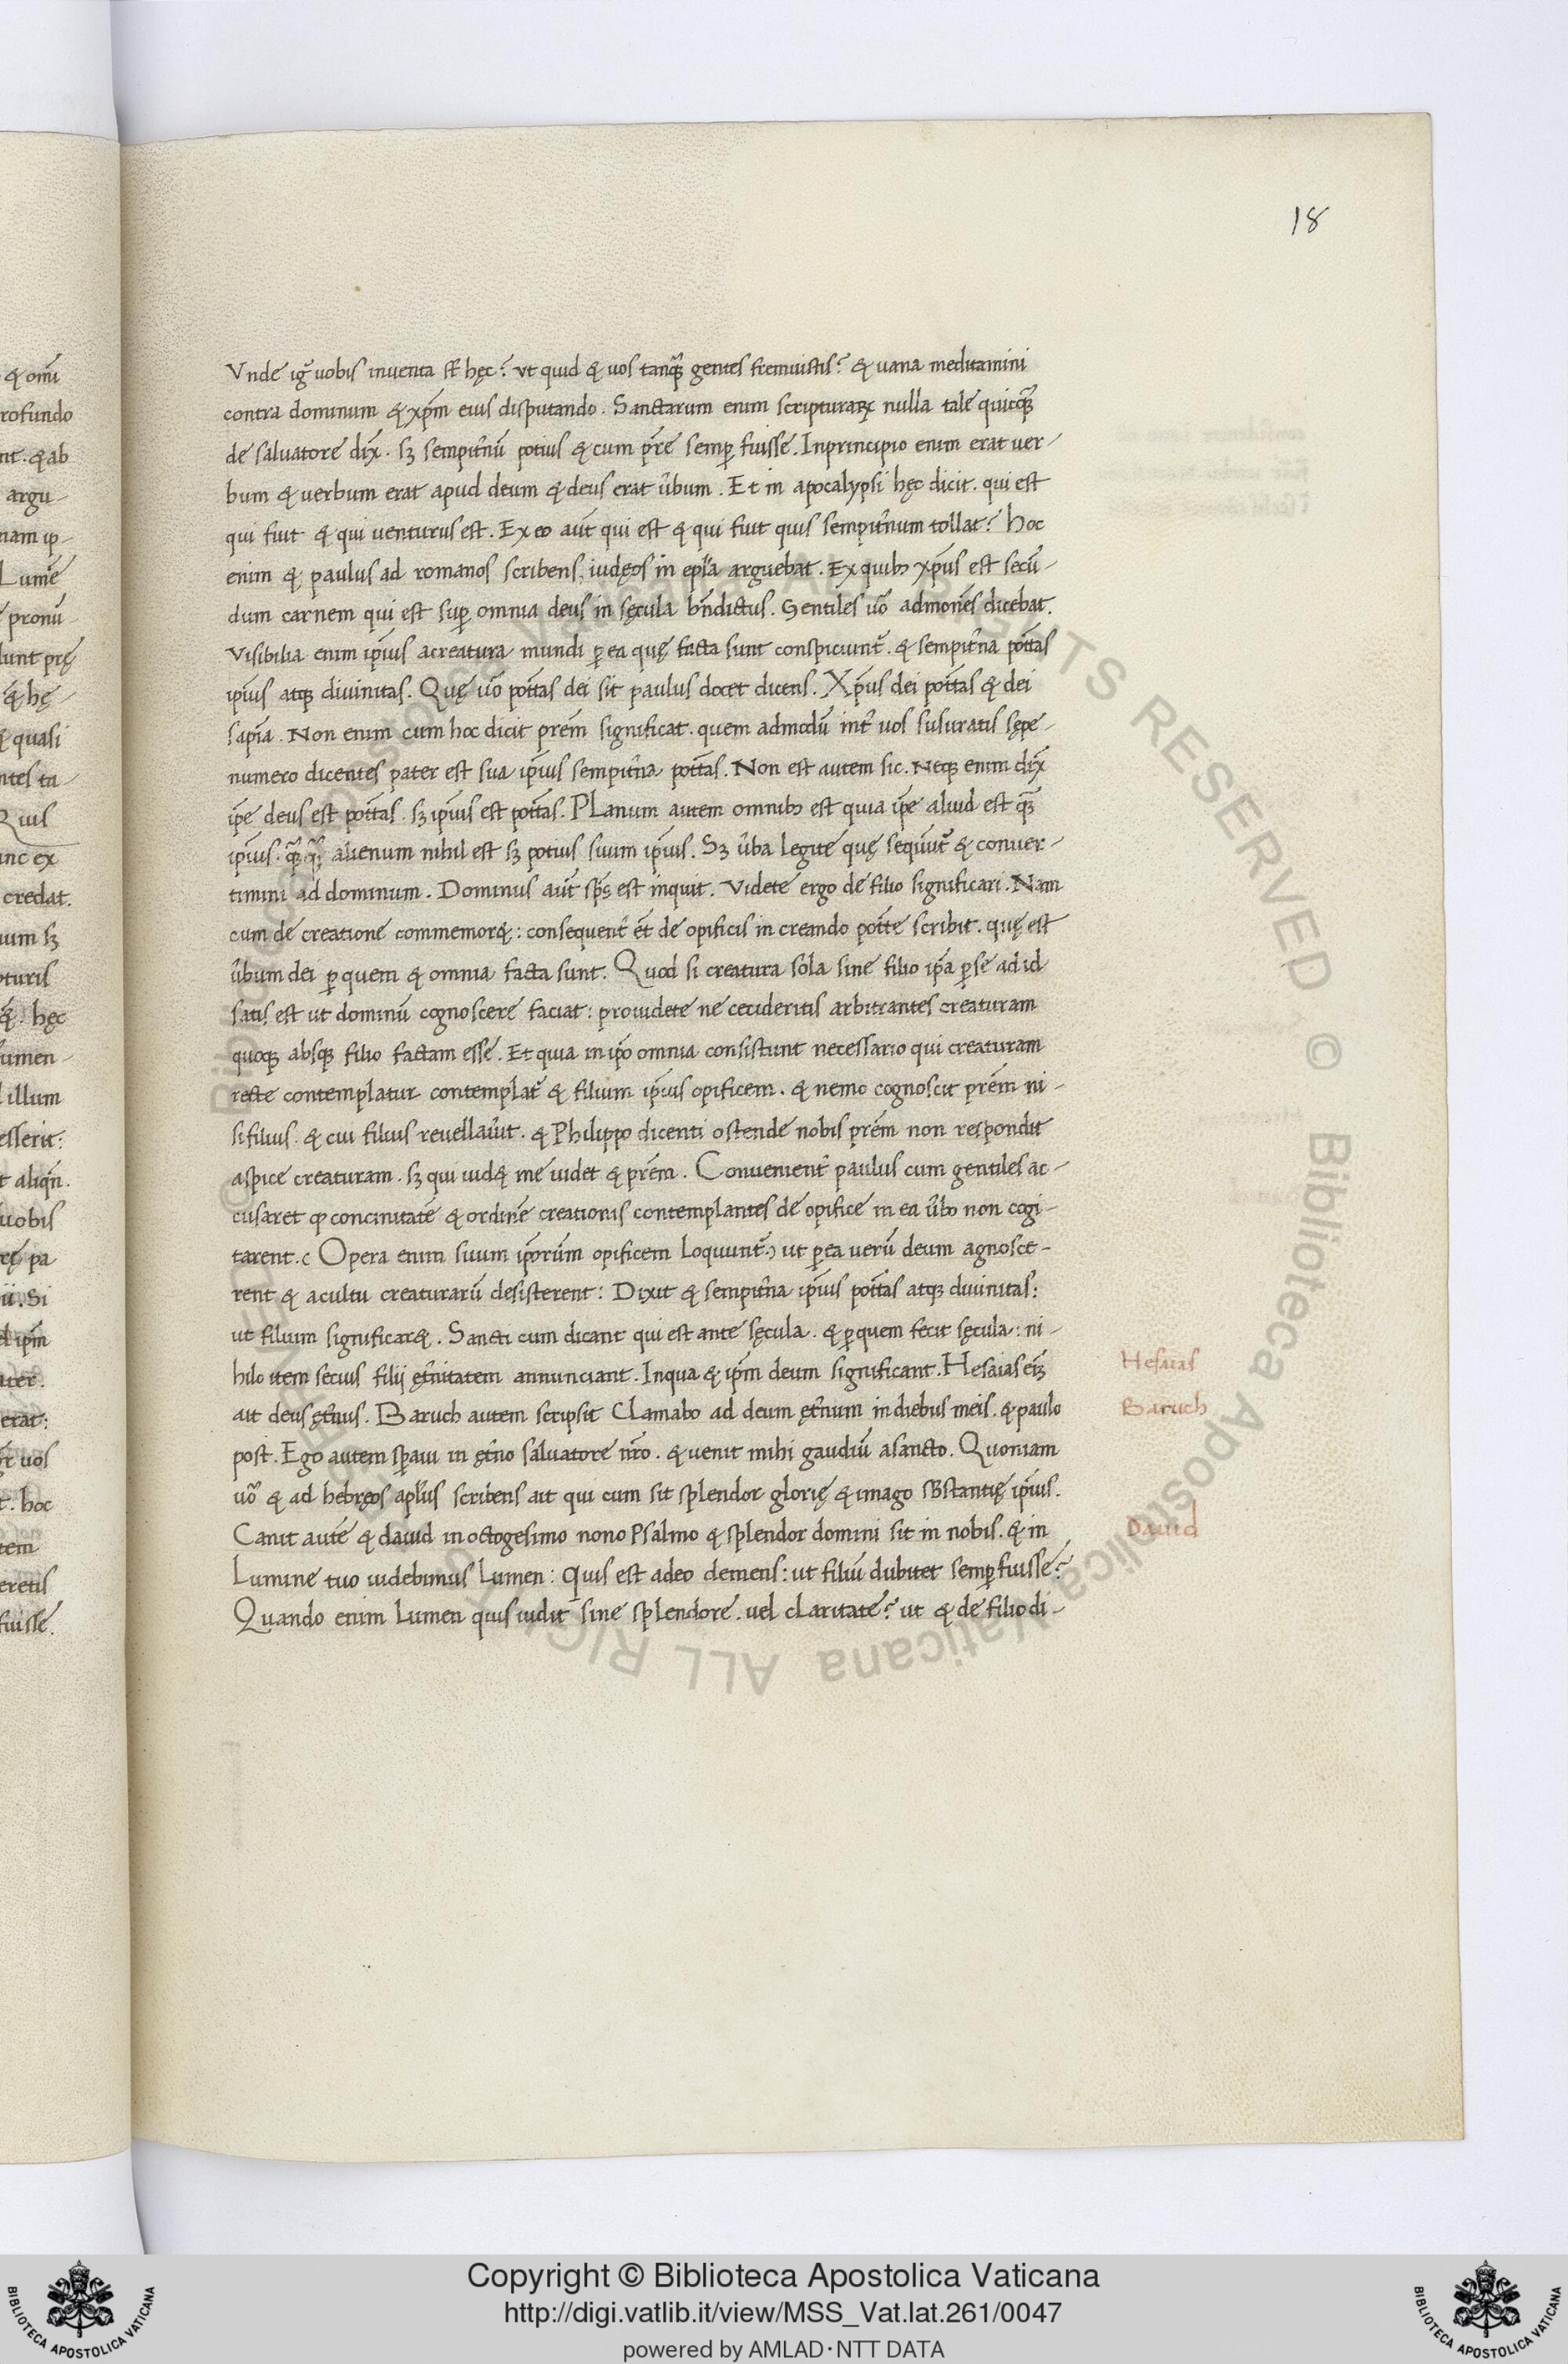 18
Vnde igr̃ uobis inuenta st̃ hęc? ut quid & uos tanq̃ȝ gentes fremuistis? & uana meditamini
contra dominum & xp̃m eius disputando. Sanctarum enim scripturaꝝ nulla tale quicq̃ȝ
de saluatore dix̃. sȝ sempit̃nũ potius & cum p̃re semꝑ fuisse. Inprincipio enim erat uer-
bum & uerbum erat apud deum & deus erat ũbum. Et in apocalypsi hęc dicit. qui est
qui fuit & qui uenturus est. Ex eo aut̃ qui est & qui fuit quis sempit̃num tollat? hoc
enim & paulus ad romanos scribens, iudęos in epl̃a arguebat. Ex quibꝫ xp̃us est secũ-
dum carnem qui est suꝑ omnia deus in sęcula bñdictus. Gentiles uõ admonẽs dicebat.
Visibilia enim ip̃ius acreatura mundi ꝑ ea quę facta sunt conspiciunt̃. & sempit̃na pot̃tas
ip̃ius atqꝫ diuinitas. Quę uõ pot̃tas dei sit paulus docet dicens. Xp̃us dei pot̃tas & dei
sap̃ia. Non enim cum hoc dicit p̃rem significat. quem admodũ int̃ uos susuratis sępe-
numero dicentes pater est sua ip̃ius sempit̃na pot̃tas. Non est autem sic. Neqꝫ enim dix̃
ip̃e deus est pot̃tas. sȝ ip̃ius est pot̃tas. PLanum autem omnibꝫ est quia ip̃e aliud est q̃ȝ
ip̃ius. q̃ȝ q̃ȝ alienum nihil est sȝ potius suum ip̃ius. Sȝ ũba legite quę sequũt̃ & conuer-
timini ad dominum. Dominus aut̃ sp̃s est inquit. Videte ergo de filio significari. Nam
cum de creatione commemor&: consequent̃ et̃ de opificis in creando pot̃te scribit. quę est
ũbum dei ꝑ quem & omnia facta sunt. Quod si creatura sola sine filio ip̃a ꝑ se ad id
satis est ut dominũ cognoscere faciat: prouidete ne cecideritis arbitrantes creaturam
quoqꝫ absqꝫ filio factam esse. Et quia in ip̃o omnia consistunt necessario qui creaturam
recte contemplatur contemplat̃ & filium ip̃ius opificem. & nemo cognoscit p̃rem ni-
si filius. & cui filius reuellaũit. & Philippo dicenti ostende nobis p̃rem non respondit
aspice creaturam. sȝ qui uid& me uidet & p̃rem. Conuenient̃ paulus cum gentiles ac-
cusaret ꝙ concinitatẽ & ordinẽ creationis contemplantes de opifice in ea ũbo non cogi-
tarent. ( Opera enim suum ip̃orũm opificem Loquunt̃.) ut ꝑ ea uerũ deum agnosce-
rent & acultu creaturarũ desisterent: Dixit & sempit̃na ip̃ius pot̃tas atqꝫ diuinitas:
ut filium significar&. Sancti cum dicant qui est ante sęcula. & ꝑ quem fecit sęcula: ni-
hilo item secius filij ęt̃nitatem annunciant. Inqua & ip̃m deum significant. Hesaias
ait deus ęt̃nus. Baruch autem scripsit Clamabo ad deum ęt̃num in diebus meis. & paulo
post. Ego autem sꝑaui in ęt̃no saluatore nr̃o. & uenit mihi gaudiũ asancto. Quoniam
uõ & ad hebręos apl̃us scribens ait qui cum sit splendor glorię & imago sb̃stantię ip̃ius.
Canit autẽ & dauid in octogesimo nono Psalmo & splendor domini sit in nobis. & in
Lumine tuo uidebimus Lumen: Quis est adeo demens: ut filiũ dubitet semꝑ fuisse?
Quando enim Lumen quis uidit sine splendore. uel cLaritate? ut & de filio di-
Hesaias
Baruch
Dauid
Copyright © Biblioteca Apostolica Vaticana
http://digi.vatlib.it/view/MSS_Vat.lat.261/0047
powered by AMLAD·NTT DATA